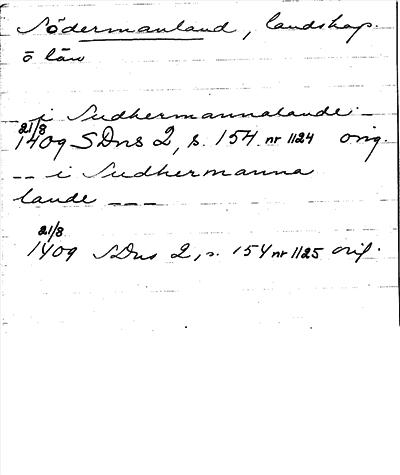 Södermanland, landskap.
o län
- - i Sudhermannalande. -
21/8
1409 SDns 2, s. 154 nr 1124 orig.
-- i Sudhermanna
lande ---
21/8
1409 SDns 2, s. 154 nr 1125 orig.